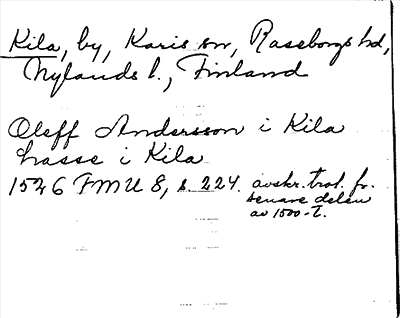 Kila, by, Karis sn, Raseborgs hd,
Nylands l., Finland
Oleff Andersson i Kila
Lasse i Kila
1526 FMU 8, s. 224. avskr. trol. fr.
senare delen
av 1500-t.